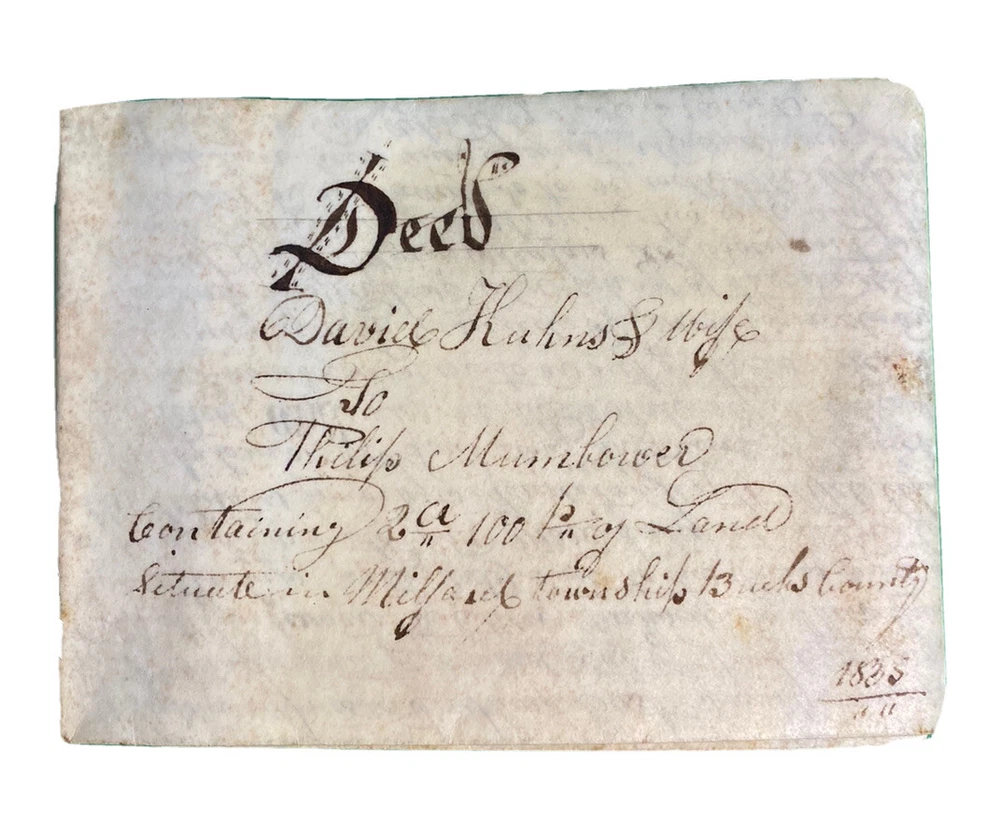 Deed
David Kuhns & Wife
To
Philip Mumbower
Containing 2 a 100 p of Land
Situate in Milford township Bucks County
1835